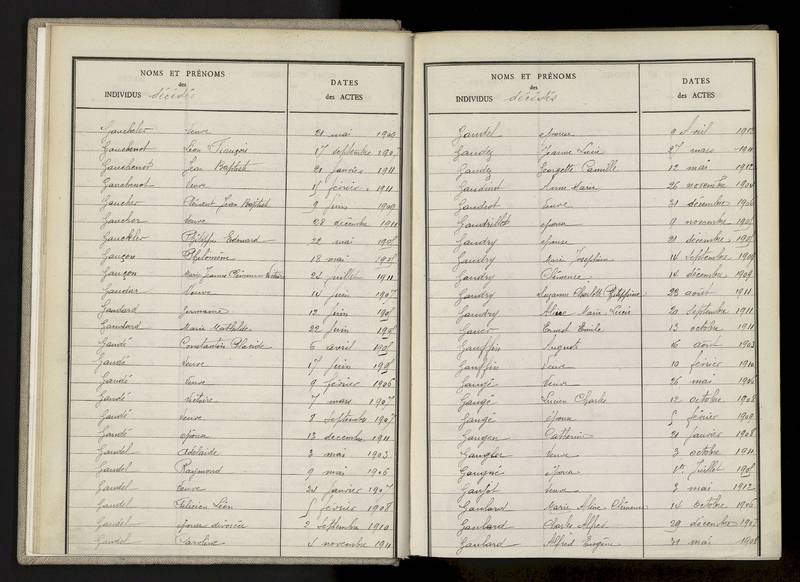 NOMS ET PRÉNOMS
des
INDIVIDUS décédés
DATES
des ACTES
Gauckeler Veuve 21 mai 1902
Gauchenot Léon François 17 septembre 1907
Gauchenot Jean Baptiste 21 janvier 1911
Gauchenot Veuve 17 février 1911
Gaucher Clément Jean Baptiste 9 juin 1902
Gaucher Veuve 28 décembre 1911
Gauckler Philippe Edouard 22 mai 1905
Gauçon Philomène 18 mai 1908
Gauçon Marie Jeanne 24 juillet 1911
Veuve 14 juin 1907
Gaudard Germaine 12 juin
Gaudard Marie Mathilde 22 juin
Gaudé Constantin Placide 6 avril
Gaudé Veuve 17 juin
Gaudé Veuve 9 février 1906
Gaudé Victoire 7 mars 1907
Gaudé Veuve 8 septembre 1907
Gaudé épouse 13 décembre 1911
Gaudel Adélaïde 3 mai 1903
Gaudel Raymond 9 mai 1906
Gaudel Veuve 24 janvier 1907
Gaudel Félicien Léon février 1908
Gaudel épouse divorcée 2 septembre 1910
Gaudel Caroline 4 novembre 1911
NOMS ET PRÉNOMS
des
INDIVIDUS décédés
DATES
des ACTES
Gaudel 9 avril 1912
Gaudez Jeanne Lucie 27 mars 1911
Gaudez Georgette Camille 12 mai 1912
Anne Marie 26 novembre 1904
Gaudiot Veuve 31 décembre 1906
Gaudrillet épouse 9 novembre
Gaudry épouse 21 décembre
Gaudry Marie Joséphine 14 septembre 1909
Gaudry Clémence 14 décembre 1909
Gaudry Suzanne Charlotte Delphine 23 août 1911
Gaudry Aline Marie Lucie 20 septembre 1911
Ernest Emile 13 octobre 1911
Gauffin Auguste 16 août 1903
Gauffin Veuve 10 février 1910
Gaugé Veuve 26 mai 1906
Gaugé Lucien Charles 12 octobre 1908
Gaugé épouse février 1909
Gaugen Catherine 21 janvier 1908
Gaugler Veuve 3 octobre 1911
Gaugué épouse 1er juillet
Gaujot Veuve 3 mai 1912
Gaulard Marie Aline Clémence 14 octobre 1906
Gaulard Charles Alfred 29 décembre 1907
Gaulard Alfred Eugène 31 mai 1908